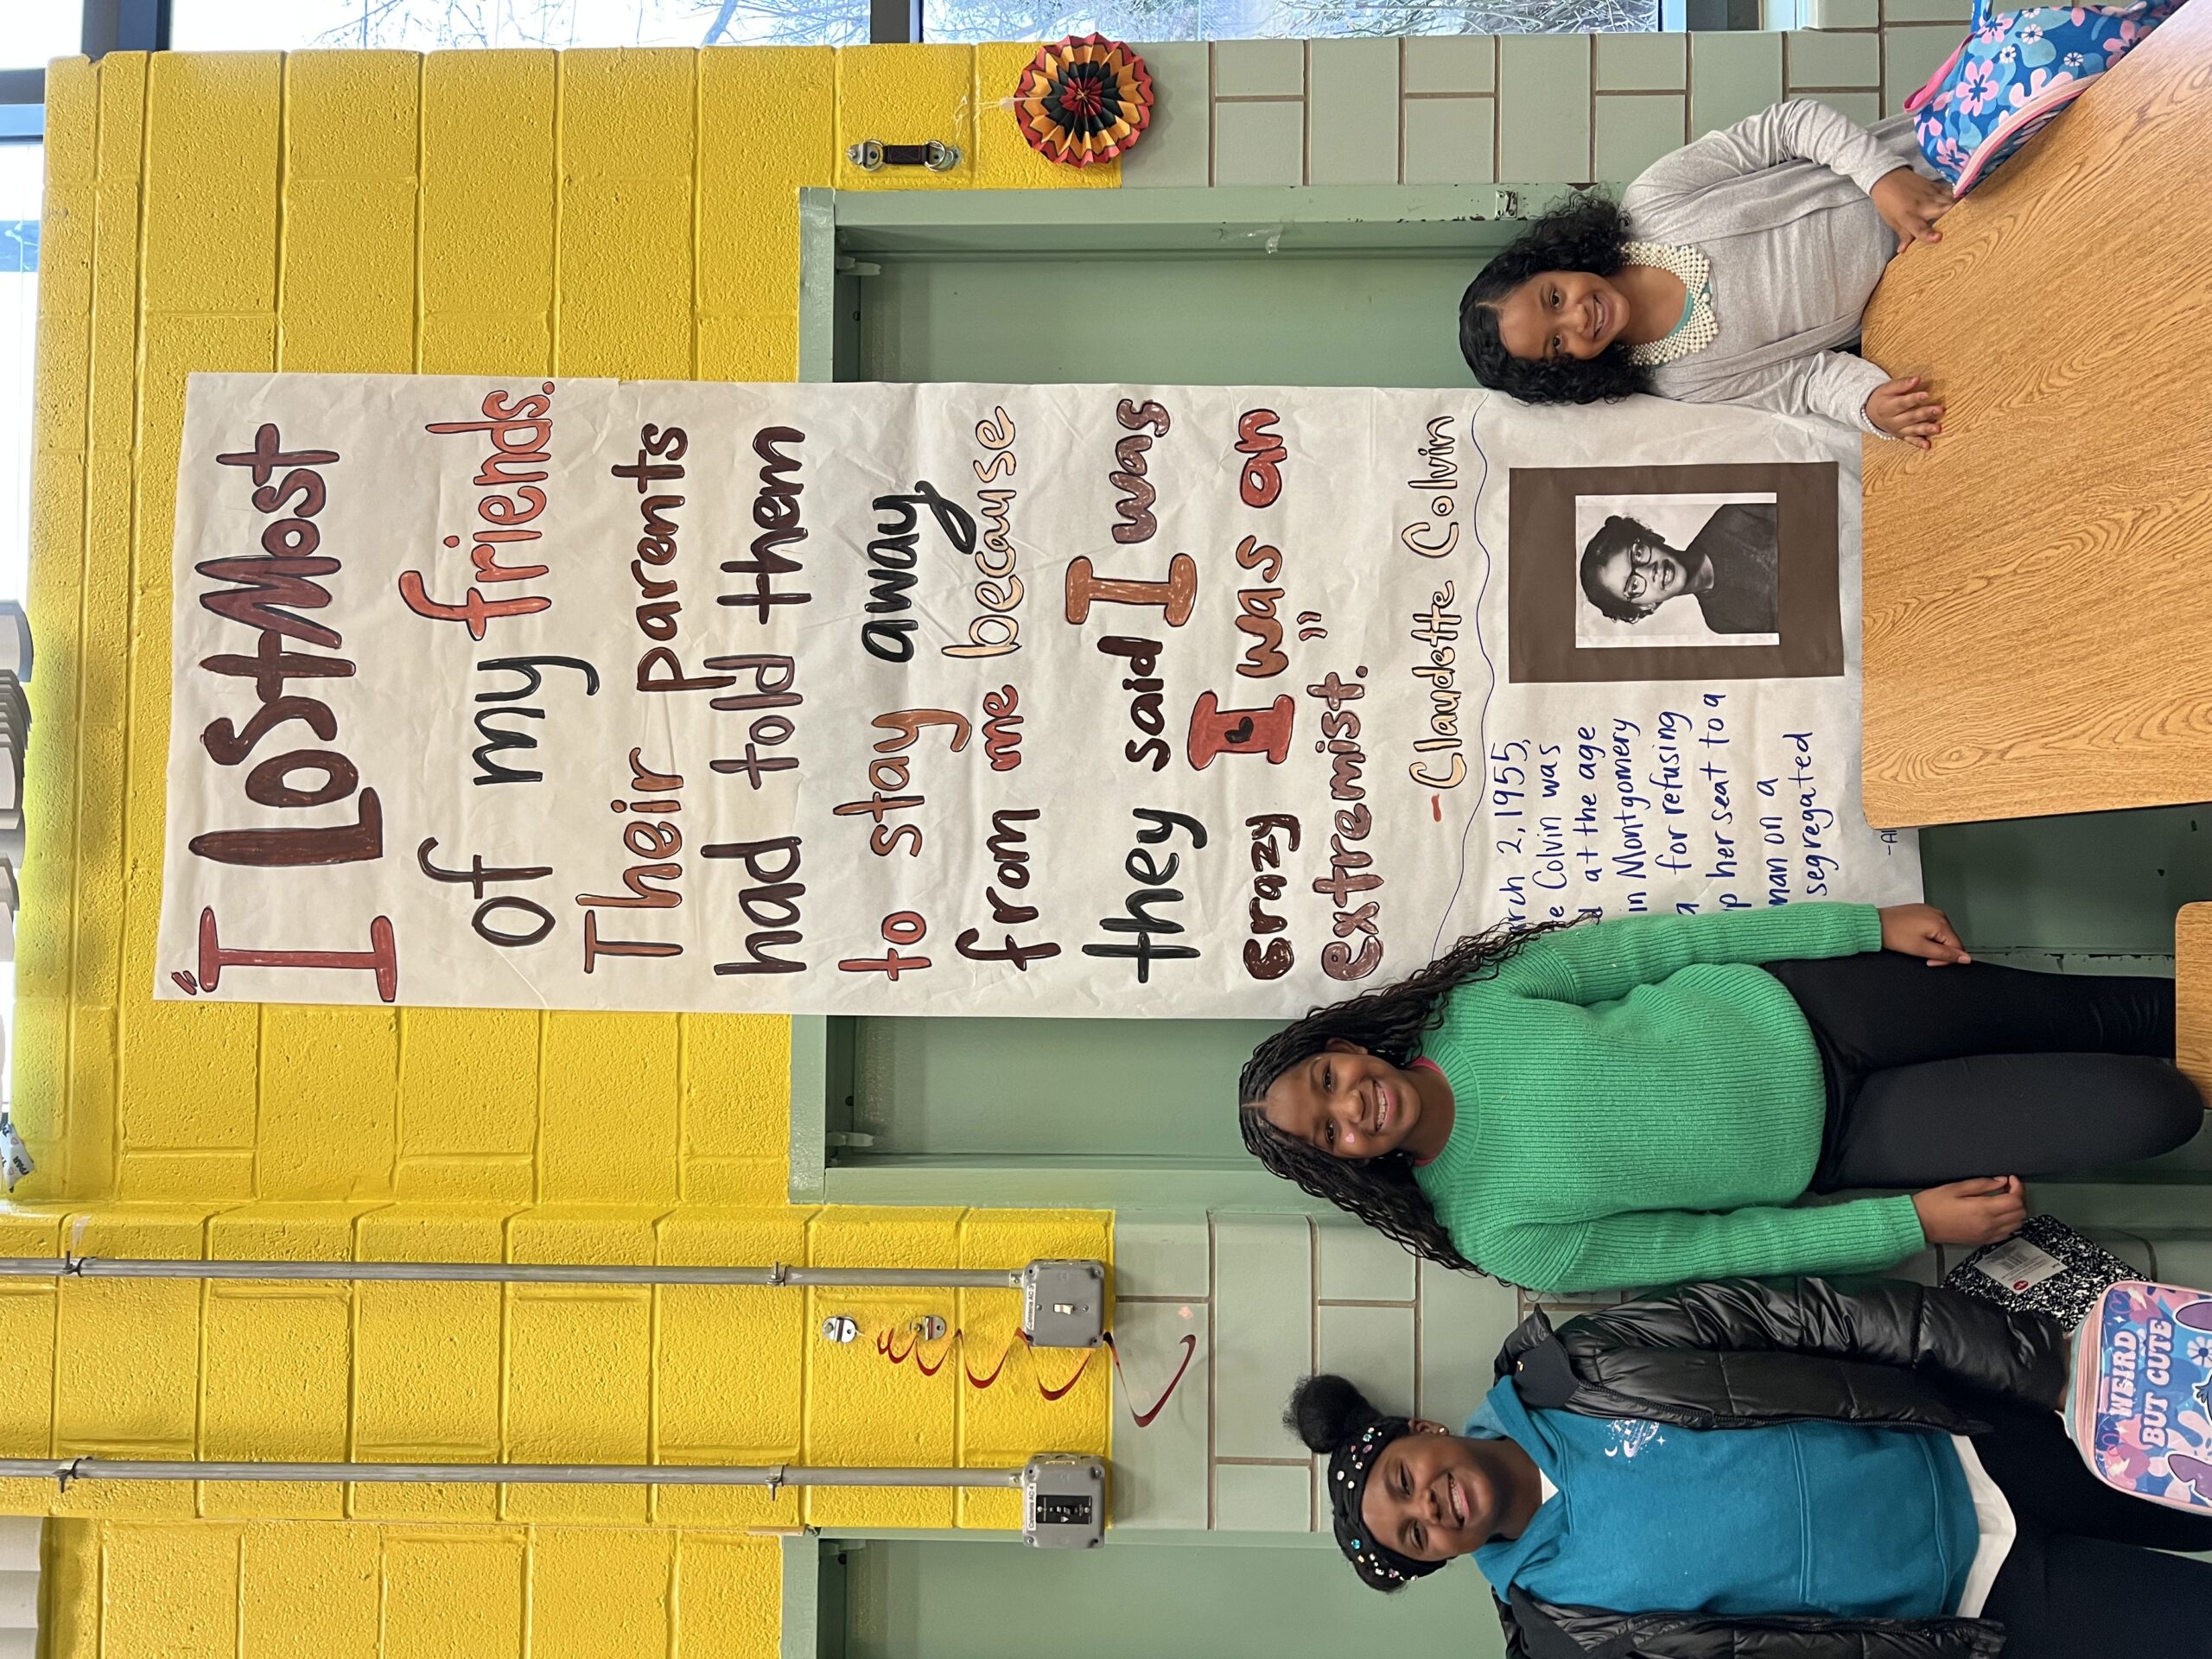 "I Lost Most
of my friends.
Their parents
had told them
to stay away
from me because
they said I was
crazy I was an
extremist."
-Claudette Colvin
2, 1955,
Colvin was
at the age
in Montgomery
for refusing
her seat to a
man on a
segregated
WEIRD
BUT CUTE